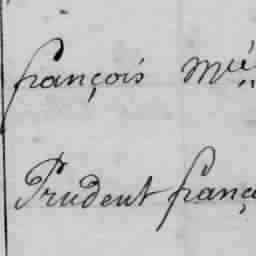 françois Mié
Prudent franç